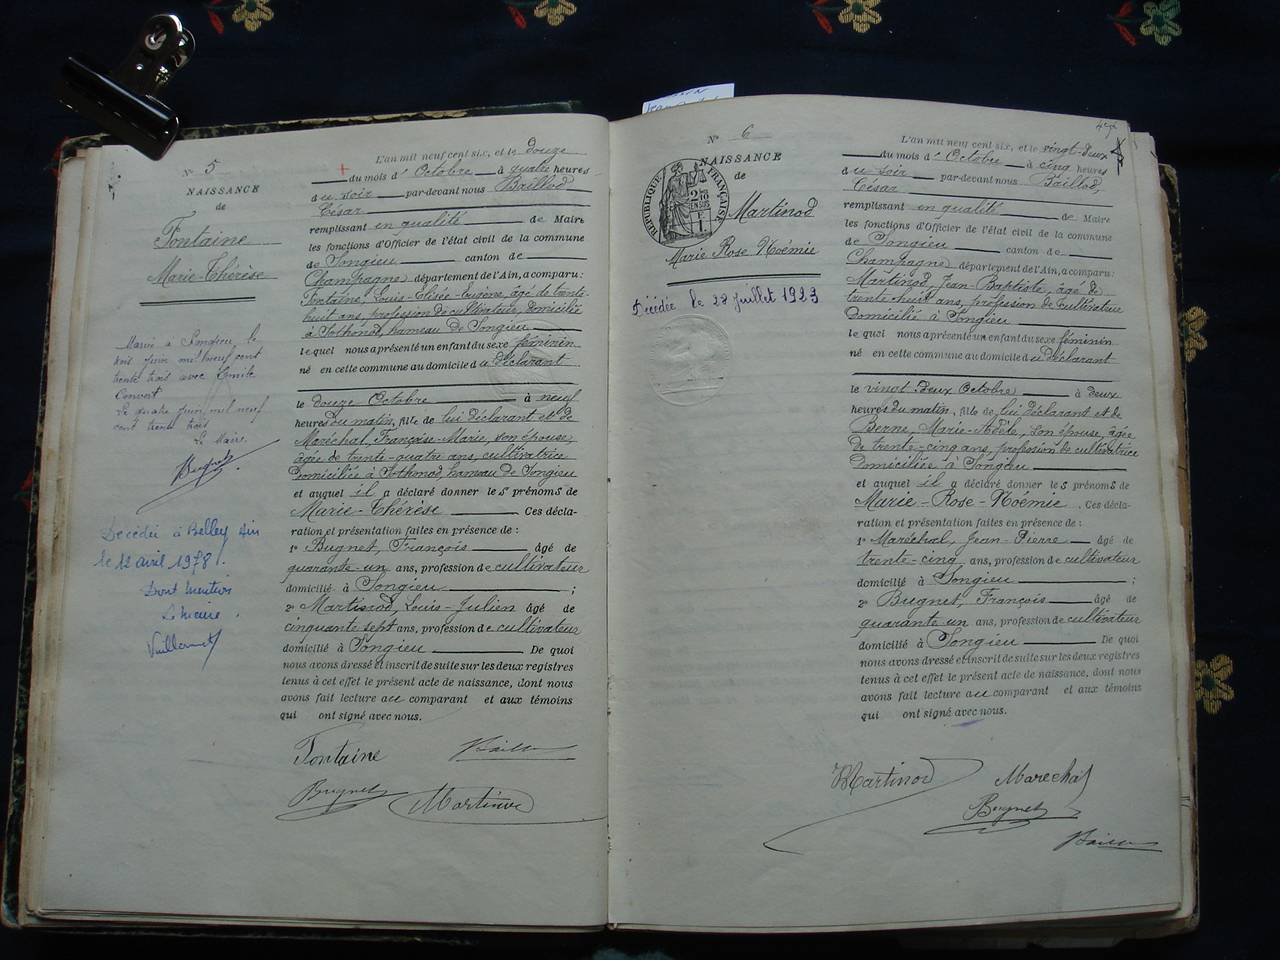 N° 5
NAISSANCE
de
Fontaine
Marie-Thérèse
Marié à Songieu, le
trois Juin mil neuf cent
trente trois avec Emile
Convert
Le quatre Juin mil neuf
cent trente trois
Le Maire
Bugnet
Décédée à Belley Ain
le 12 avril 1978.
Dont mention
Le Maire
L'an mil neuf cent six, et le douze
du mois d'Octobre à quatre heures
du soir par-devant nous Baillod,
César
remplissant en qualité de Maire
les fonctions d'Officier de l'état civil de la commune
de Songieu canton de
Champagne, département de l'Ain, a comparu :
Fontaine, Louis-Elisée-Eugène, âgé de trente-
huit ans, profession de cultivateur, domicilié
à Sothonod, hameau de Songieu
lequel nous a présenté un enfant du sexe féminin
né en cette commune au domicile du déclarant
le douze Octobre à neuf
heures du matin, fille de lui déclarant et de
Maréchal, Françoise-Marie, son épouse,
âgée de trente-quatre ans, cultivatrice
domiciliée à Sothonod, hameau de Songieu
et auquel il a déclaré donner les prénoms de
Marie-Thérèse Ces décla-
ration et présentation faites en présence de :
1° Bugnet, François âgé de
quarante-un ans, profession de cultivateur
domicilié à Songieu ;
2° Martinod, Louis-Julien âgé de
cinquante sept ans, profession de cultivateur
domicilié à Songieu De quoi
nous avons dressé et inscrit de suite sur les deux registres
tenus à cet effet le présent acte de naissance, dont nous
avons fait lecture au comparant et aux témoins
qui ont signé avec nous.
Fontaine
Baillod
Bugnet
Martinod
N° 6
NAISSANCE
de
RÉPUBLIQUE FRANÇAISE
2/10 EN SUS
F
1.
Martinod
Marie Rose Noémie
Décédée le 28 Juillet 1923
L'an mil neuf cent six, et le vingt-deux
du mois d'Octobre à cinq heures
du soir par-devant nous Baillod,
César
remplissant en qualité de Maire
les fonctions d'Officier de l'état civil de la commune
de Songieu canton de
Champagne, département de l'Ain, a comparu :
Martinod, Jean-Baptiste, âgé de
trente-huit ans, profession de cultivateur
domicilié à Songieu
lequel nous a présenté un enfant du sexe féminin
né en cette commune au domicile du déclarant
le vingt-deux Octobre à deux
heures du matin, fille de lui déclarant et de
Berne, Marie-Adèle, son épouse, âgée
de trente-cinq ans, profession de cultivatrice
domiciliée à Songieu
et auquel il a déclaré donner les prénoms de
Marie-Rose-Noémie. Ces décla-
ration et présentation faites en présence de :
1° Maréchal, Jean-Pierre âgé de
trente-cinq ans, profession de cultivateur
domicilié à Songieu ;
2° Bugnet, François âgé de
quarante un ans, profession de cultivateur
domicilié à Songieu De quoi
nous avons dressé et inscrit de suite sur les deux registres
tenus à cet effet le présent acte de naissance, dont nous
avons fait lecture au comparant et aux témoins
qui ont signé avec nous.
Martinod
Marechal
Bugnet
Baillod